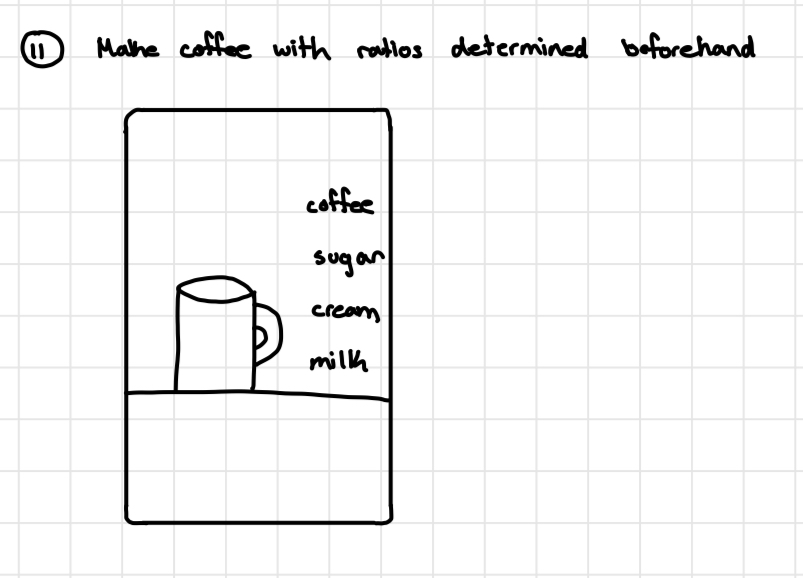 11 Make coffee with ratios determined beforehand
coffee
sugar
cream
milk